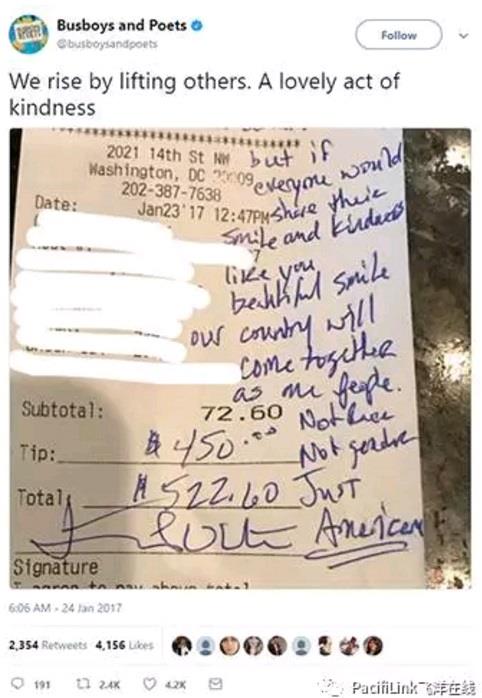 Busboys and Poets
@busboysandpoets
Follow
We rise by lifting others. A lovely act of
kindness
2021 14th St NW
Washington, DC 20009
202-387-7638
Date: Jan23'17 12:47PM
but if
everyone would
share their
smile and kindness
like you
beautiful smile
our country will
come together
as one people.
Not Race
Not gendre
Just
American
Subtotal: 72.60
Tip: $ 450.00
Total: $ 522.60
Signature
6:06 AM - 24 Jan 2017
2,354 Retweets 4,156 Likes
191 2.4K 4.2K
PacifiLink飞洋在线